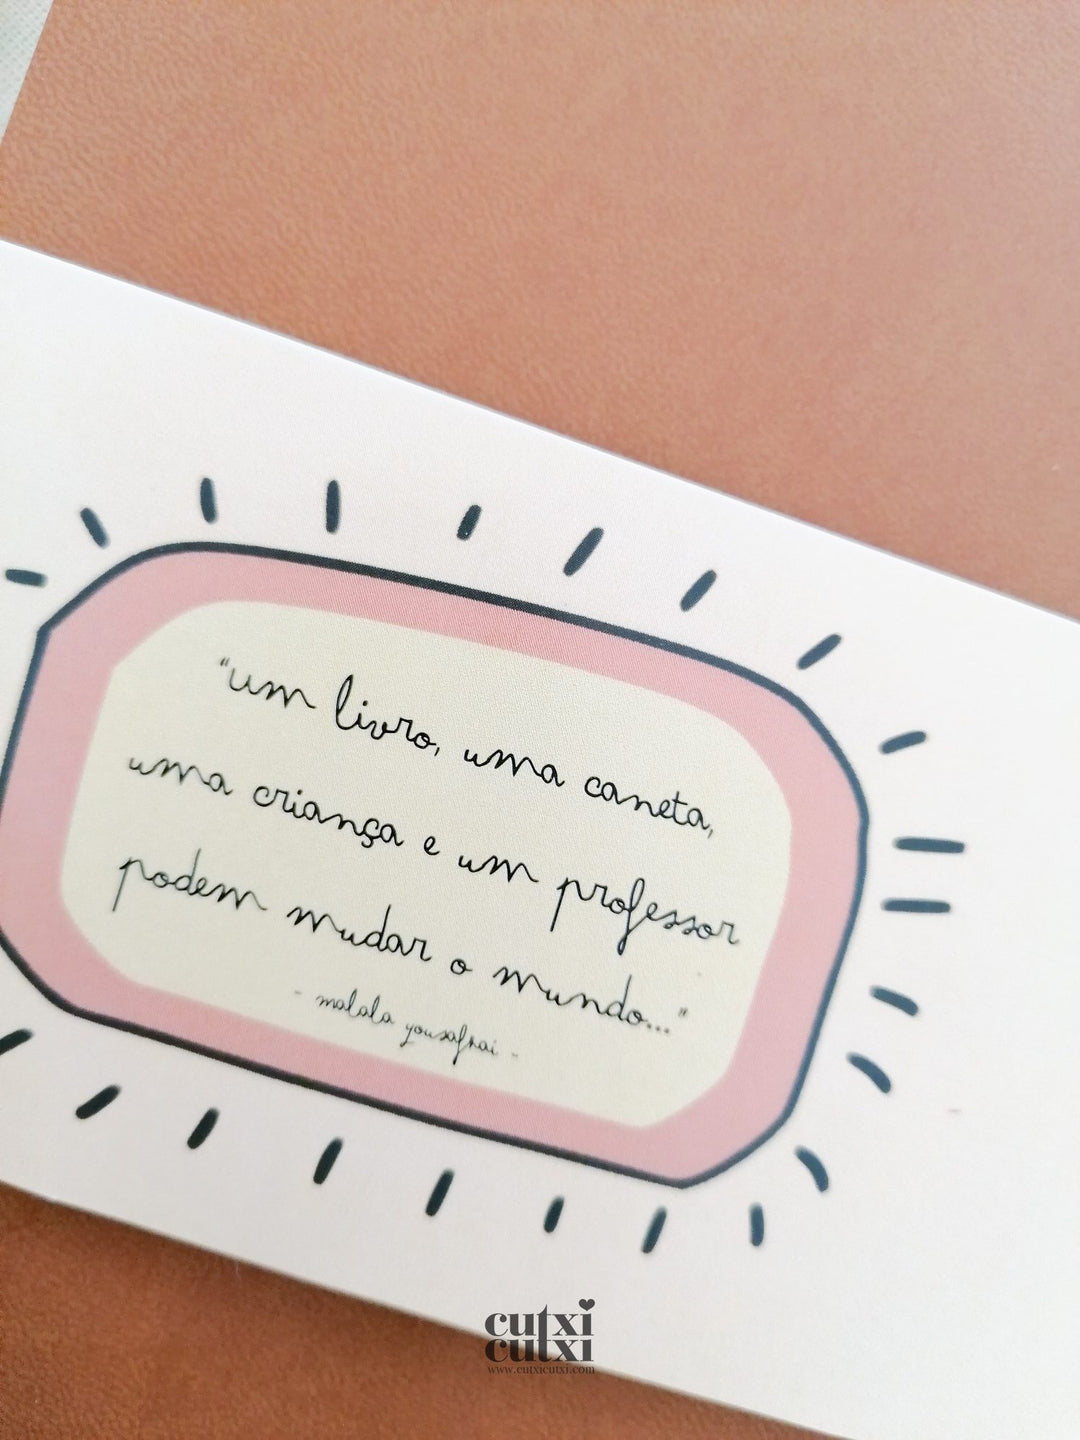 "um livro, uma caneta,
uma criança e um professor
podem mudar o mundo..."
- malala yousafzai -
cutxi
cutxi
www.cutxicutxi.com